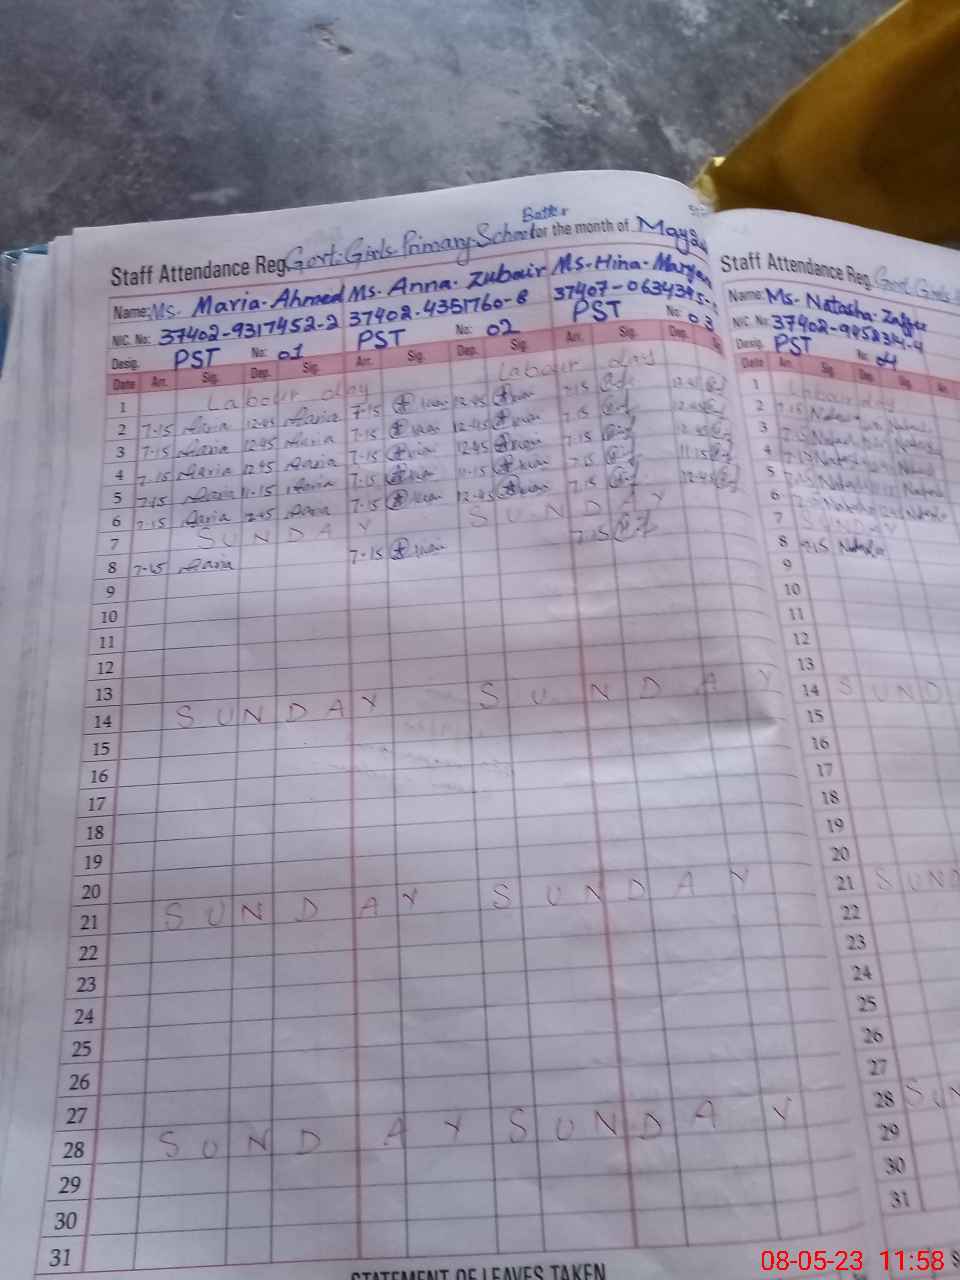 Batter
Staff Attendance Reg. Govt. Girls Primary School for the month of May
Name: Ms. Maria Ahmed Ms. Anna Zubair Ms. Hina Maryam
NIC. No: 37402-9317452-2 37402-4351760-8 37407-0634345-
Desig. PST No: 01 PST No: 02 PST No: 03
Date Arr. Sig. Dep. Sig. Arr. Sig. Dep. Sig. Arr. Sig. Dep.
1 Labour day Labour day
2 7-15 Maria 12-45 Maria 7-15 12-45 7-15 12-45
3 7-15 Maria 12-45 Maria 7-15 12-45 7-15 12-45
4 7-15 Maria 12-45 Maria 7-15 12-45 7-15 12-45
5 7-15 Maria 11-15 Maria 7-15 11-15 7-15 11-15
6 7-15 Maria 12-45 Maria 7-15 12-45 7-15 12-45
7 SUNDAY SUNDAY
8 7-15 Maria 7-15 7-15
9
10
11
12
13
14 SUNDAY SUNDAY
15
16
17
18
19
20
21 SUNDAY SUNDAY
22
23
24
25
26
27
28 SUNDAY SUNDAY
29
30
31
STATEMENT OF LEAVES TAKEN
Staff Attendance Reg. Govt. Girls
Name: Ms. Natasha Zaffer
NIC. No: 37402-9958314-4
Desig. PST No: 04
Date Arr. Sig. Dep. Sig. Arr.
1 Labour day
2 7-15
3 7-15
4 7-15
5 7-15
6 7-15
7 SUNDAY
8 7-15
9
10
11
12
13
14 SUND
15
16
17
18
19
20
21 SUND
22
23
24
25
26
27
28 SUN
29
30
31
08-05-23 11:58